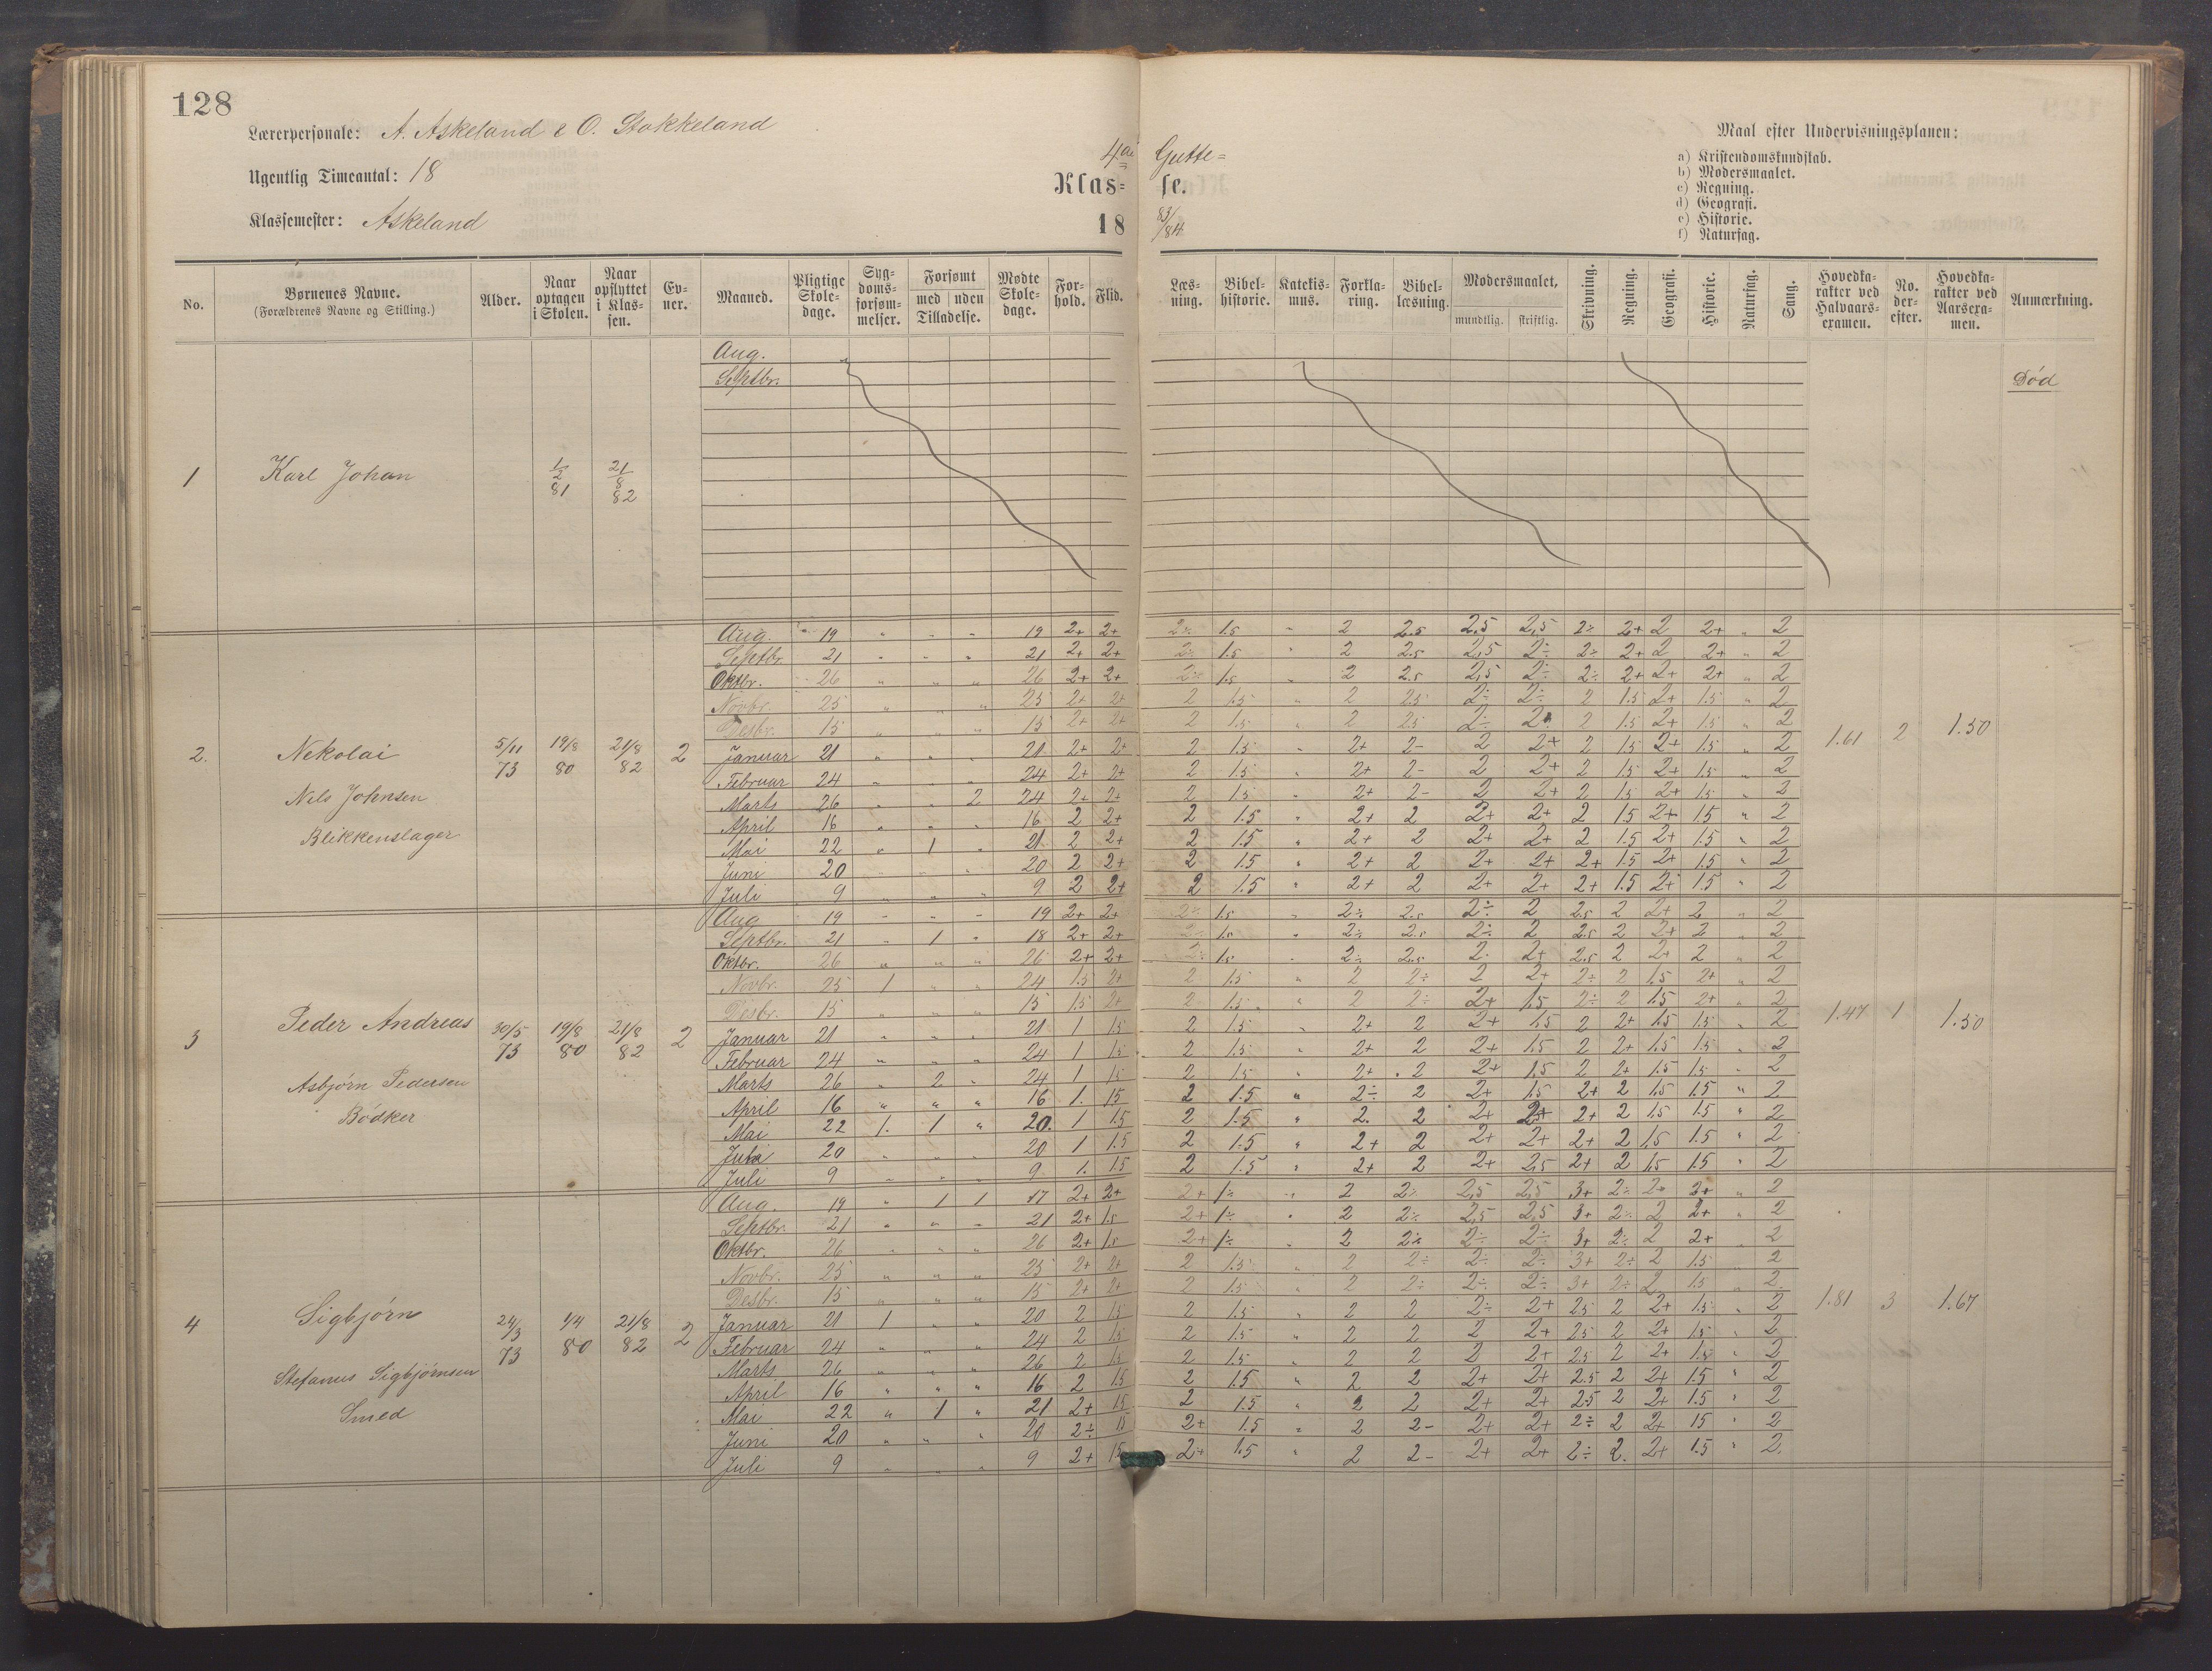 128
Lærerpersonale: A. Askeland & O. Stokkeland
Ugentlig Timeantal: 18
Klassemester: Askeland
4a Gutte=
Klas= se.
18 83/84
Maal efter Undervisningsplanen:
a) Kristendomskundskab.
b) Modersmaalet.
c) Regning.
d) Geografi.
e) Historie.
f) Naturfag.
No. Børnenes Navne. (Forældrenes Navne og Stilling.) Alder. Naar optagen i Skolen. Naar opflyttet i Klas-sen. Ev-ner. Maaned. Pligtige Skole-dage. Syg-doms-forsøm-melser. Forsømt med uden Tilladelse. Mødte Skole-dage. For-hold. Flid. Læs-ning. Bibel-historie. Katekis-mus. Forkla-ring. Bibel-læsning. Modersmaalet, mundtlig. skriftlig. Skrivning. Regning. Geografi. Historie. Naturfag. Sang. Hovedka-rakter ved Halvaars-examen. No. der-efter. Hovedka-rakter ved Aarsexa-men. Anmærkning.
1 Karl Johan 1/2 81 21/8 82 Død
Aug.
Septbr.
2. Nekolai 5/11 73 19/8 80 21/8 82 2 1.61 2 1.50
Nils Johnsen
Blikkenslager
Aug. 19 " " " 19 2+ 2+ 2÷ 1.5 " 2 2.5 2,5 2,5 2÷ 2+ 2 2+ " 2
Septbr. 21 " " " 21 2+ 2+ 2÷ 1.5 " 2 2.5 2,5 2÷ 2÷ 2+ 2 2+ " 2
Oktbr. 26 " " " 26 2+ 2+ 2÷ 1.5 " 2 2.5 2,5 2÷ 2÷ 2+ 2+ 2+ " 2
Novbr. 25 " " " 25 2+ 2+ 2 1.5 " 2 2.5 2÷ 2÷ 2 1.5 2+ 1.5 " 2
Desbr. 15 " " " 15 2+ 2+ 2 1.5 " 2 2.5 2÷ 2 1.5 2+ 1.5 " 2
Januar 21 " " " 21 2+ 2+ 2 1.5 " 2+ 2- 2 2+ 2 1.5 2+ 1.5 " 2
Februar 24 " " " 24 2+ 2+ 2 1.5 " 2+ 2- 2 2+ 2 1.5 2+ 1.5 " 2
Marts 26 " " 2 24 2+ 2+ 2 1.5 " 2+ 2- 2 2+ 2 1.5 2+ 1.5 " 2
April 16 " " " 16 2 2+ 2 1.5 " 2+ 2 2+ 2+ 2 1.5 2+ 1.5 " 2
Mai 22 " 1 " 21 2 2+ 2 1.5 " 2+ 2 2+ 2+ 2 1.5 2+ 1.5 " 2
Juni 20 " " " 20 2 2+ 2 1.5 " 2+ 2 2+ 2+ 2+ 1.5 2+ 1.5 " 2
Juli 9 " " " 9 2 2+ 2 1.5 " 2+ 2 2+ 2+ 2+ 1.5 2+ 1.5 " 2
3 Peder Andreas 30/5 73 19/8 80 21/8 82 2 1.47 1 1.50
Asbjørn Pedersen
Bødker
Aug 19 " " " 19 2+ 2+ 2÷ 1.5 " 2÷ 2.5 2÷ 2 2.5 2 2+ 2 " 2
Septbr. 21 " 1 " 18 2+ 2+ 2÷ 1.5 " 2÷ 2.5 2÷ 2 2.5 2 2+ 2 " 2
Oktbr. 26 " " " 26 2+ 2+ 2÷ 1.5 " 2÷ 2.5 2 2+ 2.5 2 2+ 2 " 2
Novbr. 25 1 " " 24 1.5 2+ 2 1.5 " 2 2÷ 2 2+ 2÷ 2 1.5 2+ " 2
Desbr. 15 " " " 15 1.5 2+ 2 1.5 " 2 2÷ 2+ 1.5 2÷ 2 1.5 2+ " 2
Januar 21 " " " 21 1 1.5 2 1.5 " 2+ 2 2+ 1.5 2 2+ 1.5 1.5 " 2
Februar 24 " " " 24 1 1.5 2 1.5 " 2+ 2 2+ 1.5 2 2+ 1.5 1.5 " 2
Marts 26 " 2 " 24 1 15 2 1.5 " 2+ 2 2+ 1.5 2 2+ 1.5 1.5 " 2
April 16 " " " 16 1. 15 2 1.5 " 2÷ 2 2+ 1.5 2+ 2 1,5 1.5 " 2
Mai 22 1. 1 " 20. 1 1.5 2 1.5 " 2. 2 2+ 2+ 2+ 2 1,5 1.5 " 2
20 " " " 20 1 1.5 2 1.5 " 2+ 2 2+ 2+ 2+ 2 1,5 1.5 " 2
Juli 9 " " " 9 1. 1.5 2 1.5 " 2+ 2 2+ 2,5 2+ 2 1,5 1.5 " 2
4 Sigbjørn 24/3 73 1/4 80 21/8 82 2 1.81 3 1.67
Stefanus Sigbjørnsen
Smed
Aug. 19 " 1 1 17 2+ 2+ 2+ 1÷ " 2 2÷ 2,5 2,5 3+ 2÷ 2+ 2+ " 2
Septbr. 21 " " " 21 2+ 1.5 2+ 1÷ " 2 2÷ 2,5 2,5 3+ 2÷ 2 2+ " 2
Oktbr. 26 " " " 26 2+ 1.5 2+ 1÷ " 2 2÷ 2÷ 2÷ 3+ 2÷ 2 2+ " 2
Novbr. 25 " " " 25 2+ 2+ 2 1.5 " 2 2÷ 2÷ 2÷ 3+ 2÷ 2 1.5 " 2
Desbr. 15 " " " 15 2+ 2+ 2 1.5 " 2 2÷ 2÷ 2÷ 3+ 2÷ 2 1.5 " 2
Januar 21 1 " " 20 2 1.5 2 1.5 " 2 2 2÷ 2+ 2.5 2 2+ 1.5 " 2
Februar 24 " " " 24 2 1.5 2 1.5 " 2 2 2 2+ 2.5 2 2+ 1.5 " 2
Marts 26 " " " 26 2 1.5 2 1.5 " 2 2 2 2+ 2.5 2 2+ 1.5 " 2
April 16 " " " 16 2 1.5 2 1.5 " 2 2 2+ 2+ 2.5 2 2+ 1.5 " 2
Mai 22 " 1 " 21 2+ 15 2 1.5 " 2 2 2+ 2+ 2.5 2 2+ 1.5 " 2
Juni 20 " " " 20 2÷ 15 2+ 1.5 " 2 2- 2+ 2+ 2÷ 2 2+ 15 " 2
Juli 9 " " " 9 2+ 15 2+ 1.5 " 2 2- 2+ 2+ 2÷ 2. 2+ 1.5 " 2